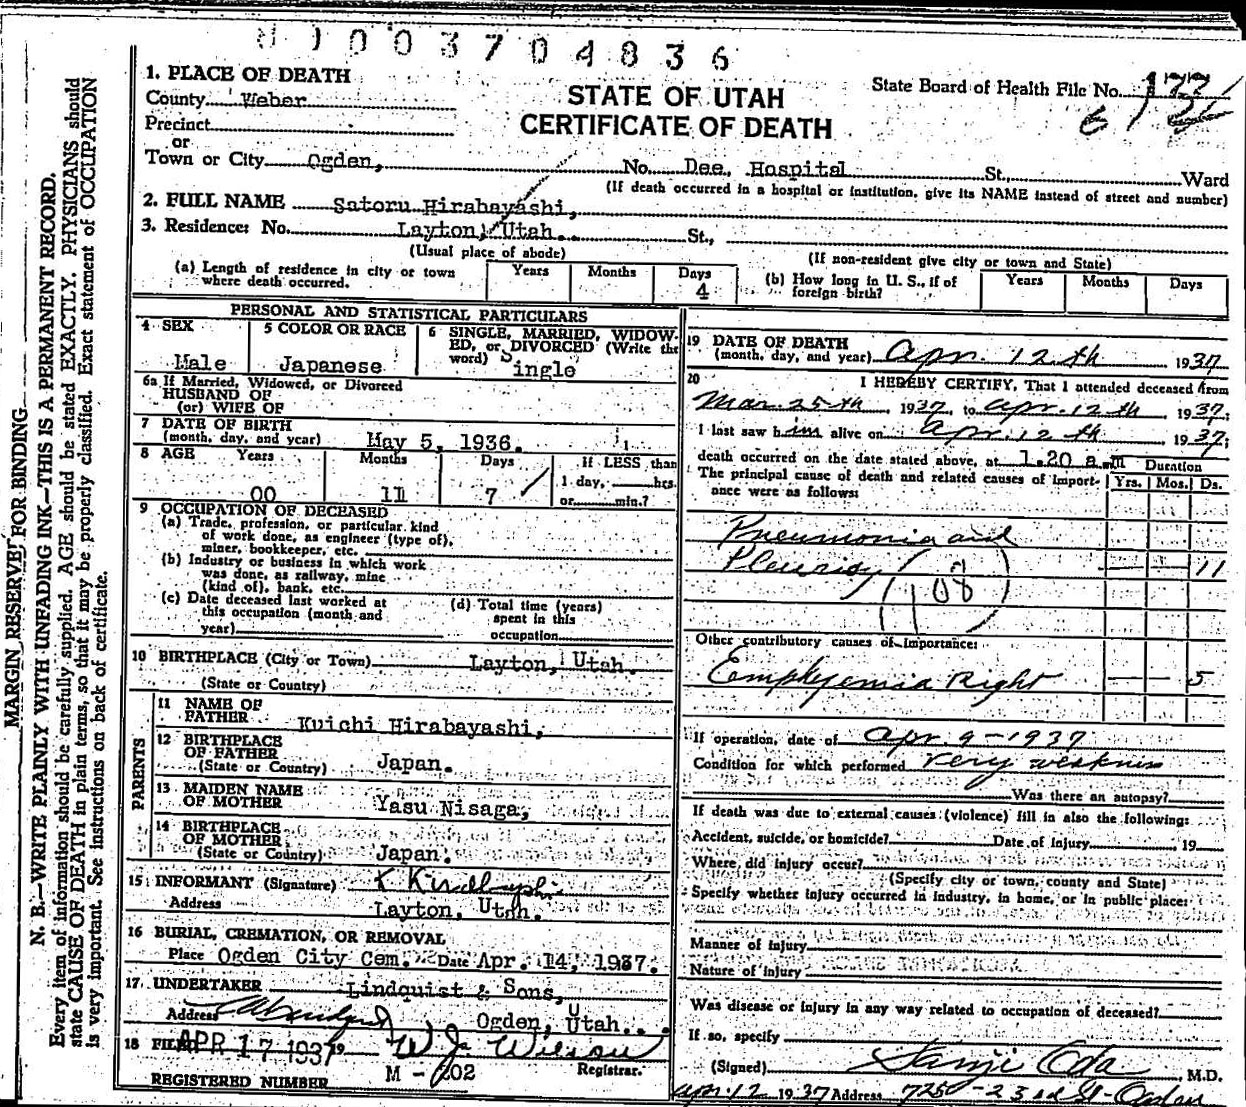 1003704836
1. PLACE OF DEATH
County Weber
Precinct
or
Town or City Ogden, No. Dee. Hospital St., Ward
(If death occurred in a hospital or institution, give its NAME instead of street and number)
STATE OF UTAH
CERTIFICATE OF DEATH
State Board of Health File No.
2. FULL NAME Satoru Hirabayashi,
3. Residence: No. Layton, Utah. St.,
(Usual place of abode)
(If non-resident give city or town and State)
(a) Length of residence in city or town where death occurred. Years Months Days 4
(b) How long in U. S., if of foreign birth? Years Months Days
PERSONAL AND STATISTICAL PARTICULARS
4 SEX Male
5 COLOR OR RACE Japanese
6 SINGLE, MARRIED, WIDOWED, or DIVORCED (Write the word) S.ingle
6a If Married, Widowed, or Divorced
HUSBAND OF
(or) WIFE OF
7 DATE OF BIRTH
(month, day, and year) May 5, 1936.
8 AGE Years Months Days If LESS than
1 day, hrs.
00 11 7 or min.?
9 OCCUPATION OF DECEASED
(a) Trade, profession, or particular kind
of work done, as engineer (type of),
miner, bookkeeper, etc.
(b) Industry or business in which work
was done, as railway, mine
(kind of), bank, etc.
(c) Date deceased last worked at
this occupation (month and
year)
(d) Total time (years)
spent in this
occupation
10 BIRTHPLACE (City or Town) Layton, Utah.
(State or Country)
PARENTS
11 NAME OF
FATHER Kuichi Hirabayashi,
12 BIRTHPLACE
OF FATHER
(State or Country) Japan.
13 MAIDEN NAME
OF MOTHER Yasu Nisaga,
14 BIRTHPLACE
OF MOTHER
(State or Country) Japan.
15 INFORMANT (Signature)
Address Layton, Utah.
16 BURIAL, CREMATION, OR REMOVAL
Place Ogden City Cem. Date Apr. 14, 1937.
17 UNDERTAKER Lindquist & Sons,
Address Ogden, Utah.
18 FILED APR 17 1937 19 W J Wilson
Registrar.
REGISTERED NUMBER M - 202
19 DATE OF DEATH
(month, day, and year) Apr. 12th 1937
20 I HEREBY CERTIFY, That I attended deceased from
Mar. 25th, 1937, to Apr. 12th, 1937;
I last saw him alive on Apr. 12th 1937;
death occurred on the date stated above, at 1.20 a.m
Duration
The principal cause of death and related causes of importance were as follows: Yrs. Mos. Ds.
Pneumonia and
Pleurisy 11
(108)
Other contributory causes of importance:
Emphyemia Right 5
If operation, date of Apr 9-1937
Condition for which performed very weakness
Was there an autopsy?
If death was due to external causes (violence) fill in also the following:
Accident, suicide, or homicide? Date of injury 19
Where did injury occur?
(Specify city or town, county and State)
Specify whether injury occurred in industry, in home, or in public place:
Manner of injury
Nature of injury
Was disease or injury in any way related to occupation of deceased?
If so, specify
(Signed) Oda, M.D.
Apr. 12 1937 Address 23rd St - Ogden
MARGIN RESERVED FOR BINDING
N. B.—WRITE PLAINLY WITH UNFADING INK—THIS IS A PERMANENT RECORD.
Every item of information should be carefully supplied. AGE should be stated EXACTLY. PHYSICIANS should
state CAUSE OF DEATH in plain terms, so that it may be properly classified. Exact statement of OCCUPATION
is very important. See instructions on back of certificate.